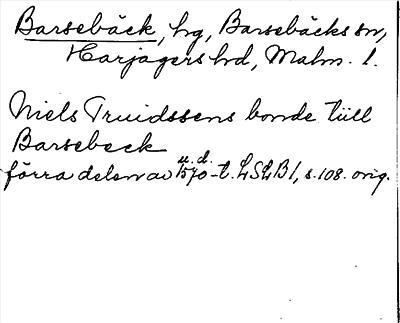 Barsebäck, hg, Barsebäcks sn,
Harjagers hd, Malm. l.
Niels Truidssens bonde tiill
Barsebeck
u.d.
förra delen av 1570-t. LSLB1, s.108. orig.